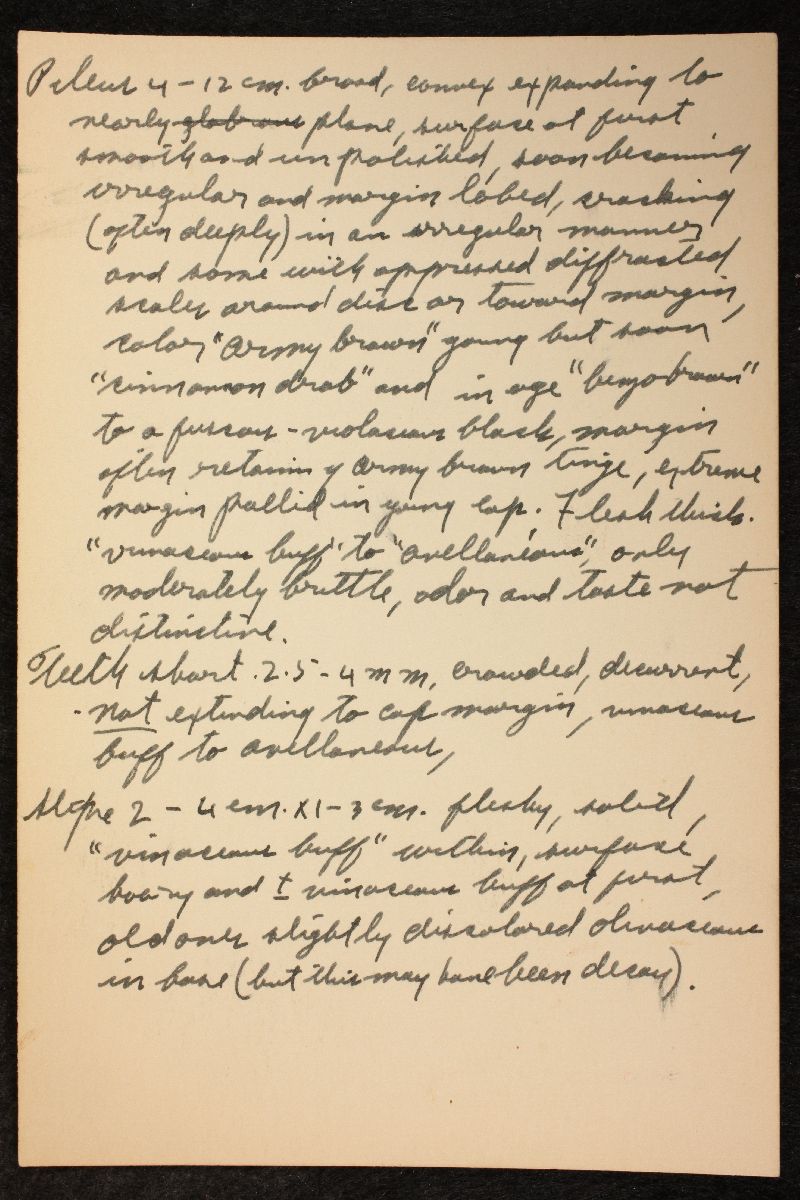 Pileus 4 - 12 cm. broad, convex expanding to
nearly glabrous plane, surface at first
smooth and unpolished, soon becoming
irregular and margin lobed, cracking
(often deeply) in an irregular manner
and some with appressed diffracted
scales around disc or toward margin,
color "Army brown" young but soon
"cinnamon drab" and in age "benzo brown"
to a fuscous - violaceous black, margin
often retaining Army brown tinge, extreme
margin pallid in young cap. Flesh thick.
"vinaceous buff" to "avellaneous", only
moderately brittle, odor and taste not
distinctive.
Teeth short .2.5 - 4 mm, crowded, decurrent,
- not extending to cap margin, vinaceous
buff to avellaneous,
Stipe 2 - 4 cm. X 1 - 3 cm. fleshy, solid,
"vinaceous buff" within, surface
and ± vinaceous buff at first,
old ones slightly discolored olivaceous
in base (but this may have been decay).